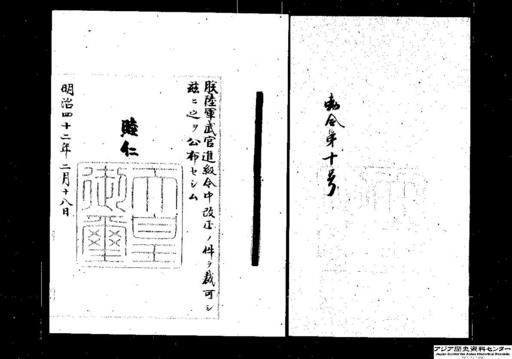 勅令第十号
朕陸軍武官進級令中改正ノ件ヲ裁可シ
茲ニ之ヲ公布セシム
睦仁
天皇
御璽
明治四十二年二月十八日
アジア歴史資料センター
Japan Center for Asian Historical Records